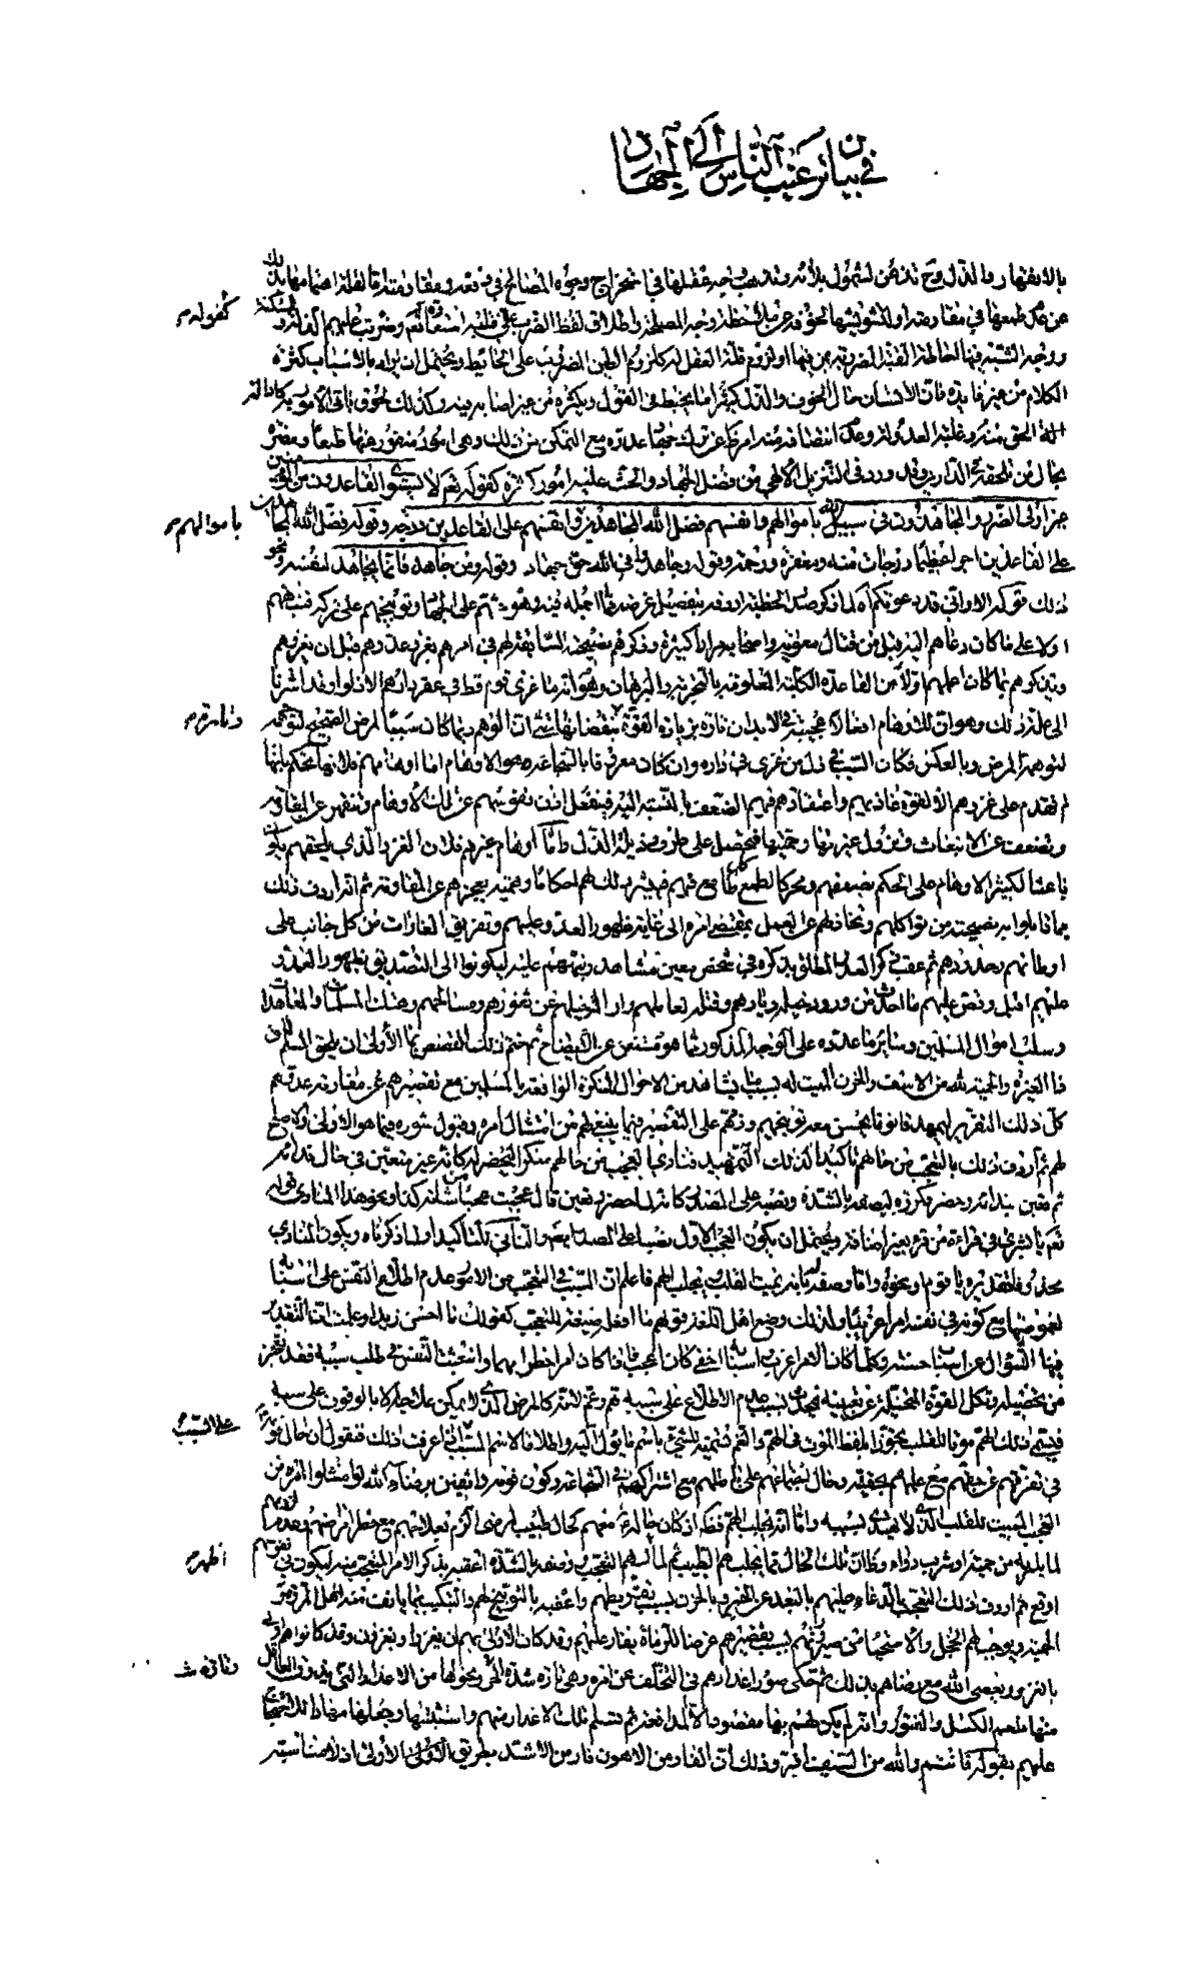 في بيان ترغيب الناس إلى الجهاد
بالانقهار والذل وح تذعن لشمول بلائه وتذهب وجه عقلها في استخراج وجوه المصالح في دفعه ومقاومته
عن عدم طمعها في مقاومته او لتشويشها لخوفه عن ملاحظة وجه المصلحة واطلاق لفظ الضرب على قلبه استعارة كقوله تعالى وضربت عليهم الذلة والمسكنة
ووجه الشبه فيها احاطة القبة المضروبة بمن فيها او لزوم قلة العقل له كلزوم الطين المضروب على الحائط ويحتمل ان يراد بالاسهاب كثرة
الكلام من غير فايدة فان الانسان حال الخوف والذل كثيرا ما يخبط في القول ويكثره من غير اصابة فيه وكذلك لحوق باقي الامور به كادالة
الحق منه وغلبة العدو له وعدم انتصافه منه امر ظاهر عن ترك جهاد عدوه مع التمكن من ذلك وهي امور منفور عنها طبعا ومضرة
بحال من لحقته في الدارين وقد ورد في التنزيل الالهي من فضل الجهاد والحث عليه امور كثيرة كقوله تعم لا يستوي القاعدون من المؤمنين
غير اولي الضرر والمجاهدون في سبيل الله باموالهم وانفسهم فضل الله المجاهدين باموالهم وانفسهم على القاعدين درجة وقوله وفضل الله المجاهدين
على القاعدين اجرا عظيما درجات منه ومغفرة ورحمة وقوله وجاهدوا في الله حق جهاده وقوله ومن جاهد فانما يجاهد لنفسه ونحو
ذلك قوله الا واني قد دعوتكم آه لما ذكر صدر الخطبة اردفه بتفصيل غرضه مما اجمله فيه وهو حثهم على الجهاد وتوبيخهم على تركه فنبههم
اولا على ما كان دعاهم اليه قبل من قتال معوية واصحابه مرارا كثيرة وذكرهم نصيحته السابقة لهم في امرهم بغزو عدوهم قبل ان يغزوهم
وتذكيرهم بما كان اعلمهم اولا من القاعدة الكلية المعلومة بالتجربة والبرهان وهو انه ما غزي قوم قط في عقر دارهم الا ذلوا وقد اشرنا
الى علة ذلك وهو ان للاوهام افعالا عجيبة في الابدان تارة بزيادة القوة وتارة بنقصانها حتى ان الوهم ربما كان سببا لمرض الصحيح لتوهمه
لتوهمه المرض وبالعكس فكان السبب في ذل من غزي في داره وان كان معروفا بالشجاعة هو الاوهام اما اوهامهم فلانها تحكم بانها
لم تقدم على غزوهم الا لقوة غازيهم واعتقادهم فيهم الضعف بالنسبة اليه فينفعل اذن نفوسهم عن تلك الاوهام وتنقهر عن المقاومة
وتضعف عن الانبعاث وتزول غيرتها وحميتها فتحصل على طرف رذيلة الذل واما اوهام غيرهم فلان الغزو الذي يلحقهم يكون
باعثا لكثير الاوهام على الحكم بضعفهم ومحركا لطمع كل طامع فيهم فيثير ذلك لهم احكاما وهمية بعجزهم عن المقاومة ثم انه اردف ذلك
بما قابلوا به نصيحته من تواكلهم وتخاذلهم عن العمل بمقتضى امره الى غاية ظهور العدو عليهم وتفريق الغارات من كل جانب على
اوطانهم وحدودهم ثم عقب بذكر العدو المطلق بذكره في شخص معين مشاهد ونبههم عليه ليكونوا الى التصديق بظهور العدو
عليهم اميل ونص عليهم ما احدث من ورود خيله ديارهم وقتله لعاملهم وازالة خيلهم عن ثغورهم ومسالحهم وهتك المسلمات والمعاهدات
وسلب اموال المسلمين وساير ما عدده على الوجه المذكور مما هو مستغن عن الايضاح ثم ختم ذلك القصص بما الاولى ان يلحق المسلم
ذا الغيرة والحمية لله من الاسف والحزن المميت له بسبب ما يشاهد من الاحوال المنكرة الواقعة بالمسلمين مع تقصيرهم عن مقاومة عدوهم
كل ذلك التقرير ليمهد قانونا يحسن معه توبيخهم وذمهم على التقصير فيما ينبغي لهم من امتثال امره وقبول شوره فيما هو الاولى والاصلح
لهم ثم اردف ذلك بالتعجب من حالهم تاكيدا لذلك التمهيد فنادى العجب من حالهم منكرا ليحضر له كانه غير متعين في حال ندائه
ثم تعين بندائه وحضر فكرره ليصفه بالشدة ونصبه على المصدر كانه لما حضر وتعين قال عجبت عجبا من شانه كذا ونحو هذا المنادى قوله
تعم يا بشرى في قراءة من قرء بغير اضافة ويحتمل ان يكون العجب الاول نصبا على المصدر ايضا والثاني للتاكيد او لما ذكرناه ويكون المنادى
محذوفا تقديره يا قوم او نحوه واما وصفه له بانه يميت القلب ويجلب الهم فاعلم ان السبب في التعجب من الامور عدم اطلاع النفس على اسبابها
لغموضها مع كونه في نفسه امرا غريبا ولذلك وضع اهل اللغة قولهم ما افعل صيغة للتعجب كقولك ما احسن زيدا وعلمت ان التقدير
فيها السؤال عن اسباب حسنه وكلما كان الامر اغرب واسبابه اخفى كان اعجب فاذا كان امرا خطرا مهما وانبعثت النفس في طلب سببه فقد تعجز
من تحصيله وتكل القوة المتخيلة عن تعيينه فيحدث بسبب عدم الاطلاع على سببه هم وغم لانه كالمرض الذي لا يمكن علاجه الا بالوقوف على سببه
فيسمى ذلك الهم موتا للقلب تجوزا بلفظ الموت في الهم والغم تسمية للشيء باسم ما يؤول اليه واطلاقا لاسم السبب على المسبب اذا عرفت ذلك فنقول ان حال قومه
في تفرقهم عن حقهم مع علمهم بحقيته وحال اجتماعهم على باطلهم مع اشتراكهم في الشجاعة وكون قومه واثقين برضاء الله لو امتثلوا امره من
العجب المميت للقلب الذي لا يهتدى لسببه واما انه يجلب الهم فظ اذ كان حاله معهم كحال طبيب لمرضى الزم بعلاجهم مع خطر امراضهم وعدم لزومهم
لما يامر به من حمية او شرب دواء وظ ان تلك الحال مما يجلب هم الطبيب ثم لما ابهم التعجب وصفه بالشدة اعقبه بذكر الامر المتعجب منه ليكون في نفوسهم
اوقع ثم اردف ذلك التعجب بالدعاء عليهم بالبعد عن الخير وبالحزن بسبب تفريطهم واعقبه بالتوبيخ لهم والتبكيت بما يانف منه اهل المروة
الحمية ويوجب لهم الخجل والاستحياء من صيرورتهم بسبب تقصيرهم غرضا للرماة يغار عليهم وقد كان الاولى بهم ان يغيروا ويغزون وقد كانوا هم اولى
بالغزو ويعصى الله مع رضاهم بذلك ثم حكى صور اعذارهم في التخلف عن امره وهي تارة شدة الحر ونحوها من الاعذار التي يذوق العاقل
منها طعم الكسل والفتور وانه لم يكن لهم بها مقصود الا المدافعة ثم تسلم تلك الاعذار منهم واستثبتها وجعلها مهادا للاحتجاج
عليهم بقوله فانتم والله من السيف افر وذلك ان الفار من الاهون فار من الاشد بطريق الاولى اذ لا مناسبة